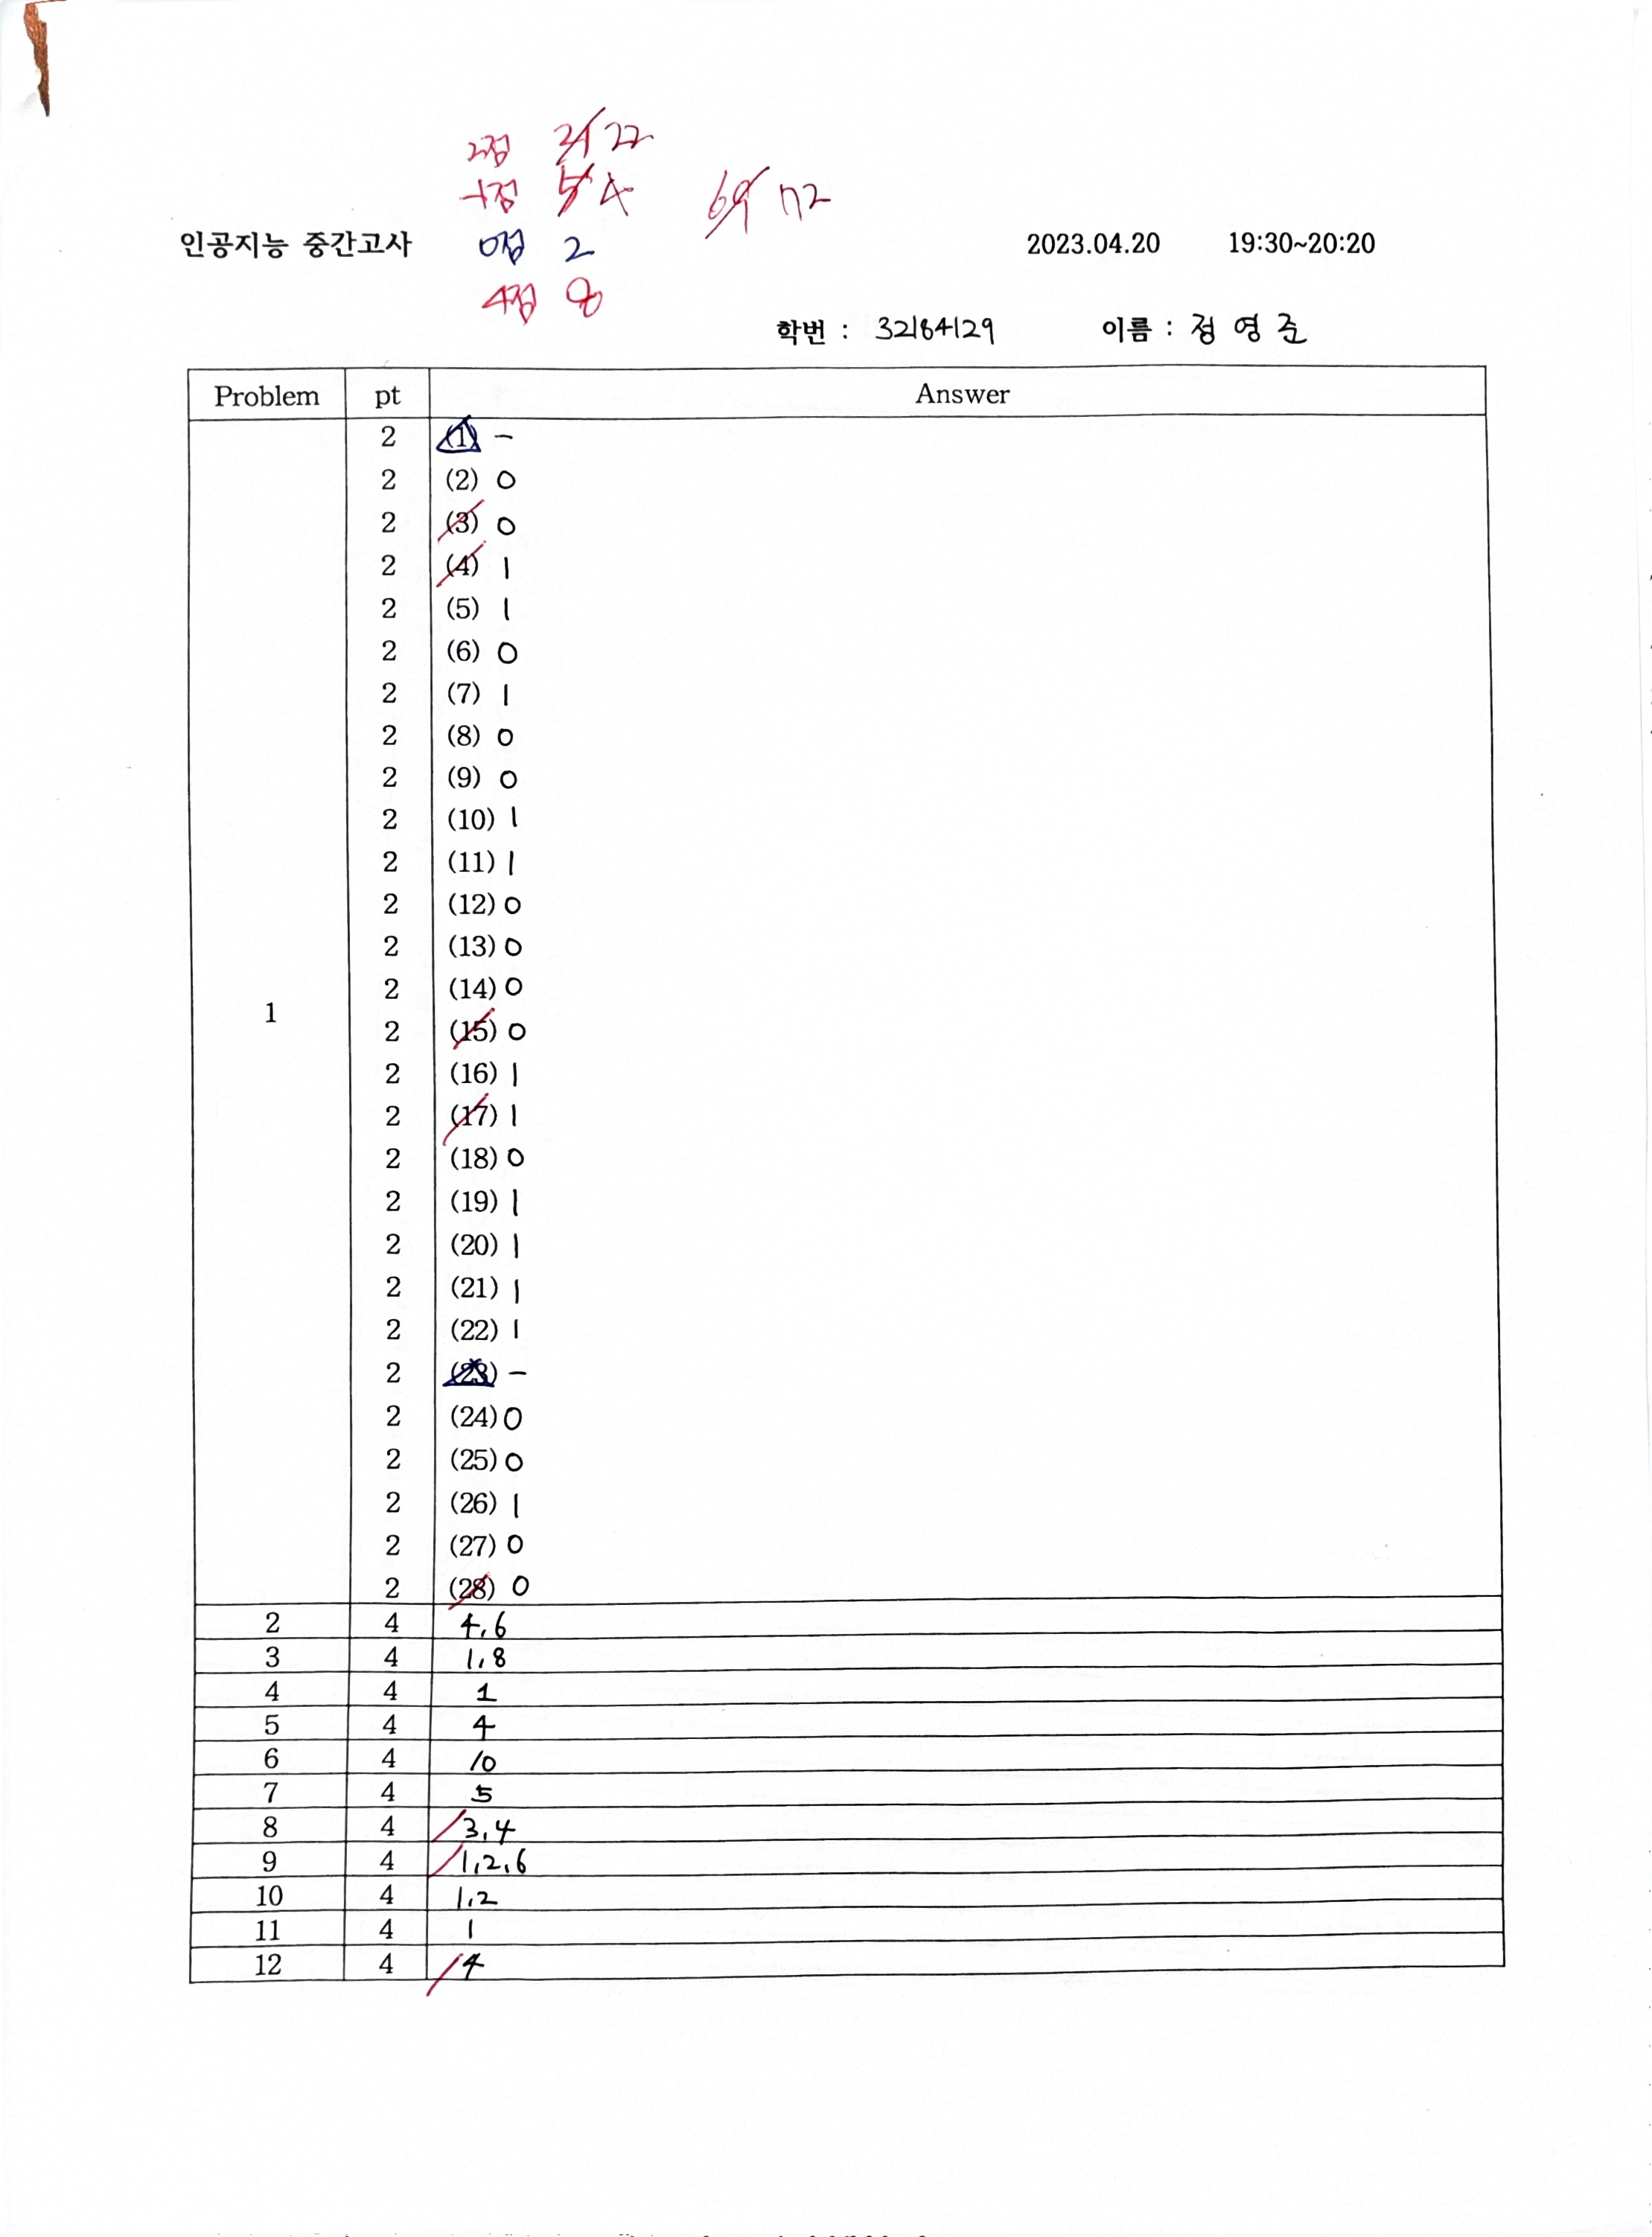 2점 21 22
-1점 5 4 69 72
인공지능 중간고사 0점 2 2023.04.20 19:30~20:20
4점 8
학번 : 32164129 이름 : 정영준
Problem pt Answer
1
2 (1) -
2 (2) 0
2 (3) 0
2 (4) 1
2 (5) 1
2 (6) 0
2 (7) 1
2 (8) 0
2 (9) 0
2 (10) 1
2 (11) 1
2 (12) 0
2 (13) 0
2 (14) 0
2 (15) 0
2 (16) 1
2 (17) 1
2 (18) 0
2 (19) 1
2 (20) 1
2 (21) 1
2 (22) 1
2 (23) -
2 (24) 0
2 (25) 0
2 (26) 1
2 (27) 0
2 (28) 0
2 4 4,6
3 4 1,8
4 4 1
5 4 4
6 4 10
7 4 5
8 4 3,4
9 4 1,2,6
10 4 1,2
11 4 1
12 4 4